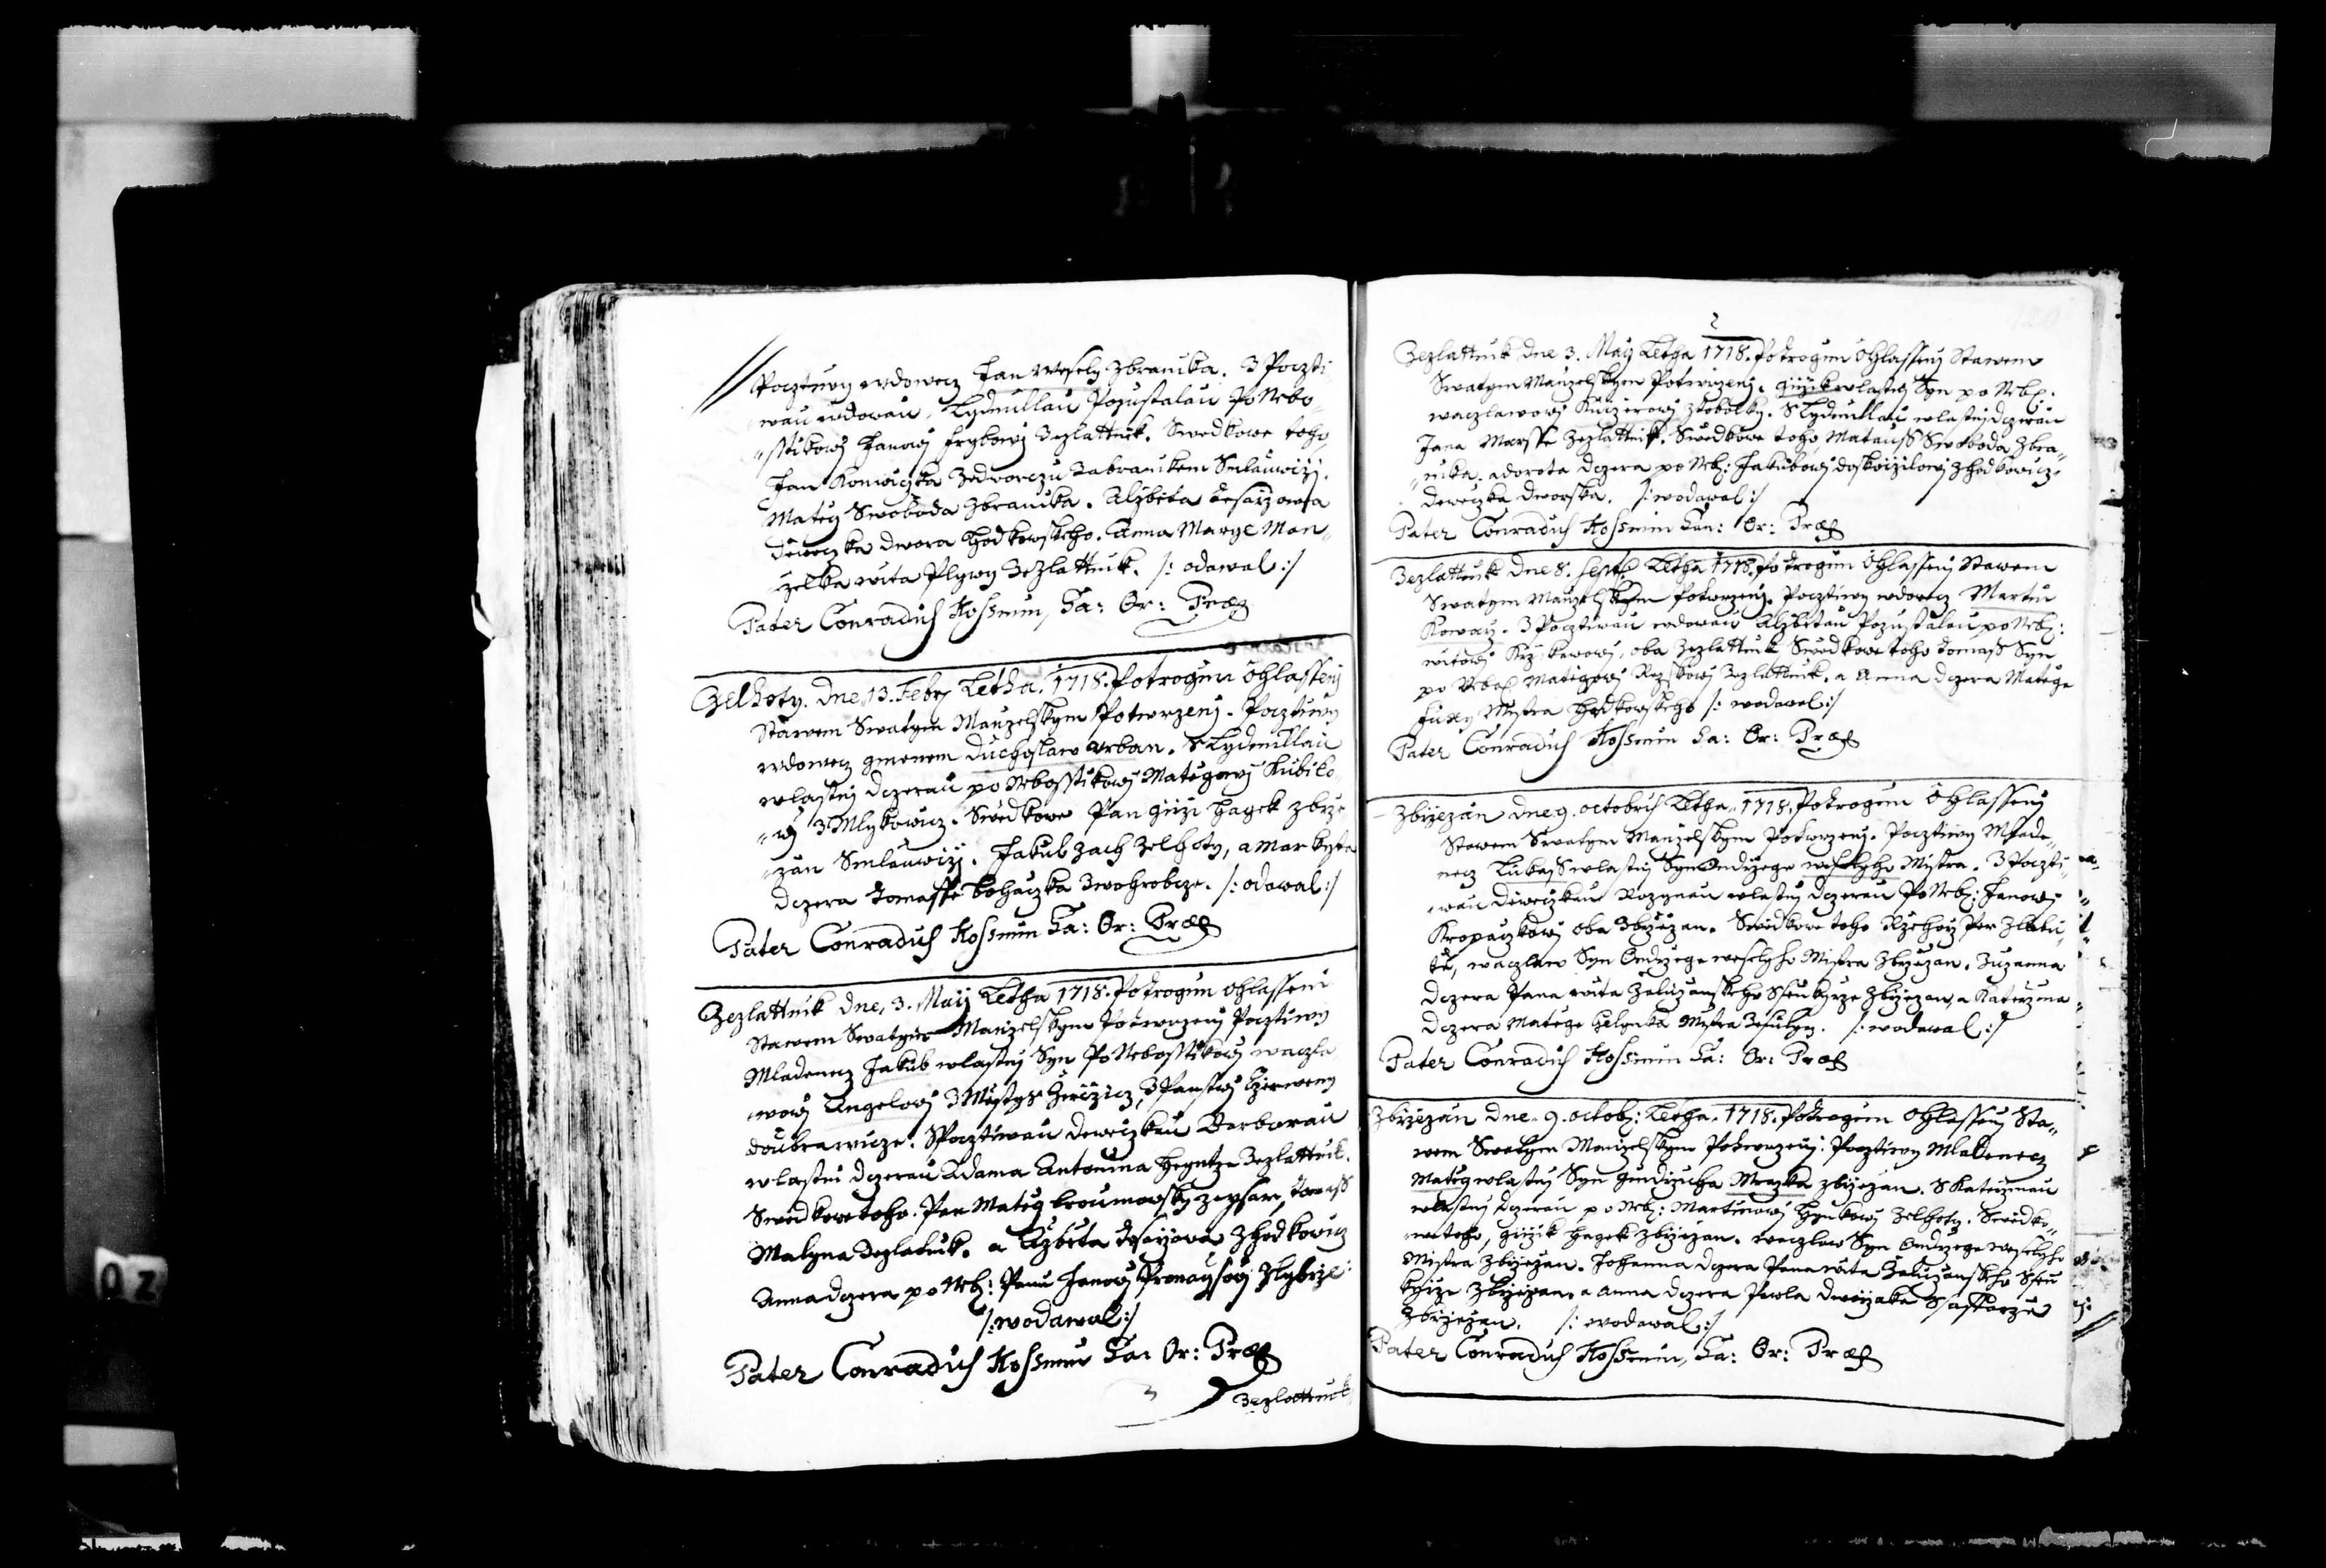 Pocztiwy wdowecz Jan Wesely Zbranika. З Poczti
wau wdowau, Lydmillau Pozustalau Po Nebo„
„sstikowj Janowj Frybowj Zezlattnik. Swedkowe toho,
Jan Konwiczka Zedworczu Zabranikem Smlauwiczj.
Mateg Swoboda Zbranika. Alzbieta Cesarzowa
Dieweczka dwora Hodkowskeho. Anna Marye Man„
„zelka wita Plywy Zezlattnik. /: odawal :/
Pater Conradus Hossman, Ca: Or: Præ
Zelhoty. Dne, 13. Febr. Letha. 1718. Potrogim Ohlassenj
Stawem Swatym Manzelskym Potwrzenj. Pocztiwy
wdowecz gmenem Duchoslaw Urban. S Lydmillau
wlastnj dczerau po Nebosstikowj Matiegowj Kubiko„
„wj З Mlykowicz. Swiedkowe Pan Girzi Hagek Zbrze
„zan Smlauwczj. Jakub Zach Zelhoty, a Markyta
dczera Tomasse Bohaczka Zwohrobcze. /: odawal :/
Pater Conradus Hossman Ca: Or: Præ
Zezlattnik Dne, 3. Maij Letha 1718. Potrogim Ohlassenj
Stawem Swatym Manzelskym Potwrzenj Pocztiwy
Mladenecz Jakub wlastnj Syn Po Nebosstikowj waczla
„wowj Angelowj З Miestys , З Panstwj Czerweny
doubrawicze. S Pocztiwau dieweczkau Barborau
wlastnj dczerau Adama Antonina Hegntze Zezlattnik.
Swiedkowe toho. Pan Mateg Broumowsky , Tomass
Malyna Zezlattnik. a Alzbieta Zhodkowicz
Anna dczera po Neb: Panu Janowj
/: wodawal :/
Pater Conradus Hossman Ca: Or: Præ
Zezlattnik
2
Zezlattnik Dne 3. Maij Letha 1718. Potrogim Ohlassenj Stawem
Swatym Manzelskym Potwrzenj. Girzik wlastnj Syn po Neb.
waczlawowj . S Lydmillau wlastnj dczerau
Jana Marsse Zezlattnik. Swiedkowe toho, Matauss Swoboda Zbra„
„nika. a Dorota dczera po Neb: Jakubowj Zhodkowicz
Dieweczka dworska. /: wodawal :/
Pater Conradus Hossman Can: Or: Præ
Zezlattnik Dne 8. Sept. Letha 1718. Potrogim Ohlassenj Stawem
Swatym Manzelskym Potwrzenj. Pocztiwy wdowecz Martin
Kowarz. З Pocztiwau wdowau Alzbietau Pozustalau po Neb:
witowj , oba Zezlattnik Swiedkowe toho Tomass Syn
po Neb. Matiegowj Zezlattnik. a Anna dczera Matiege
Fuxy Mistra Hodkowskeho /: wodawal :/
Pater Conradus Hossman Ca: Or: Præ
Zbrzezan Dne 9. Octobris Letha. 1718. Potrogim Ohlassenj
Stawem Swatym Manzelskym Potwrzenj. Pocztiwy Mlade„
necz Lukass wlastnj Syn Ondrzege weselyho Mistra. З Poczti„
„wau Dieweczkau Rozynau wlastnj dczerau Po Neb: Janowj
Kropaczkowj oba Zbrzezan. Swiedkowe toho
, waczlaw Syn Ondrzege weselyho Mistra Zbrzezan. Zuzanna
dczera Pana wita Zaluzanskeho Zbrzezan, a Katerzina
dczera Matiege Mistra . /: wodawal :/
Pater Conradus Hossman Ca: Or: Præ
Zbrzezan Dne. 9. Octob: Letha. 1718. Potrogim Ohlassenj Sta„
wem Swatym Manzelskym Potwrzenj. Pocztiwy Mladenecz
Mateg wlastnj Syn Gindrzicha Mrazka Zbrzezan. S Katerzinau
wlastnj dczerau po Neb: Martinowj Zelhoty. Swiedko„
we toho, Girzik Hagek Zbrzezan. waczlaw Syn Ondrzege weselyho
Mistra Zbrzezan. Johanna dczera Pana wita Zaluzanskeho
Zbrzezan. a Anna dczera Pawla
Zbrzezan. /: wodawal :/
Pater Conradus Hossman, Ca: Or: Præ